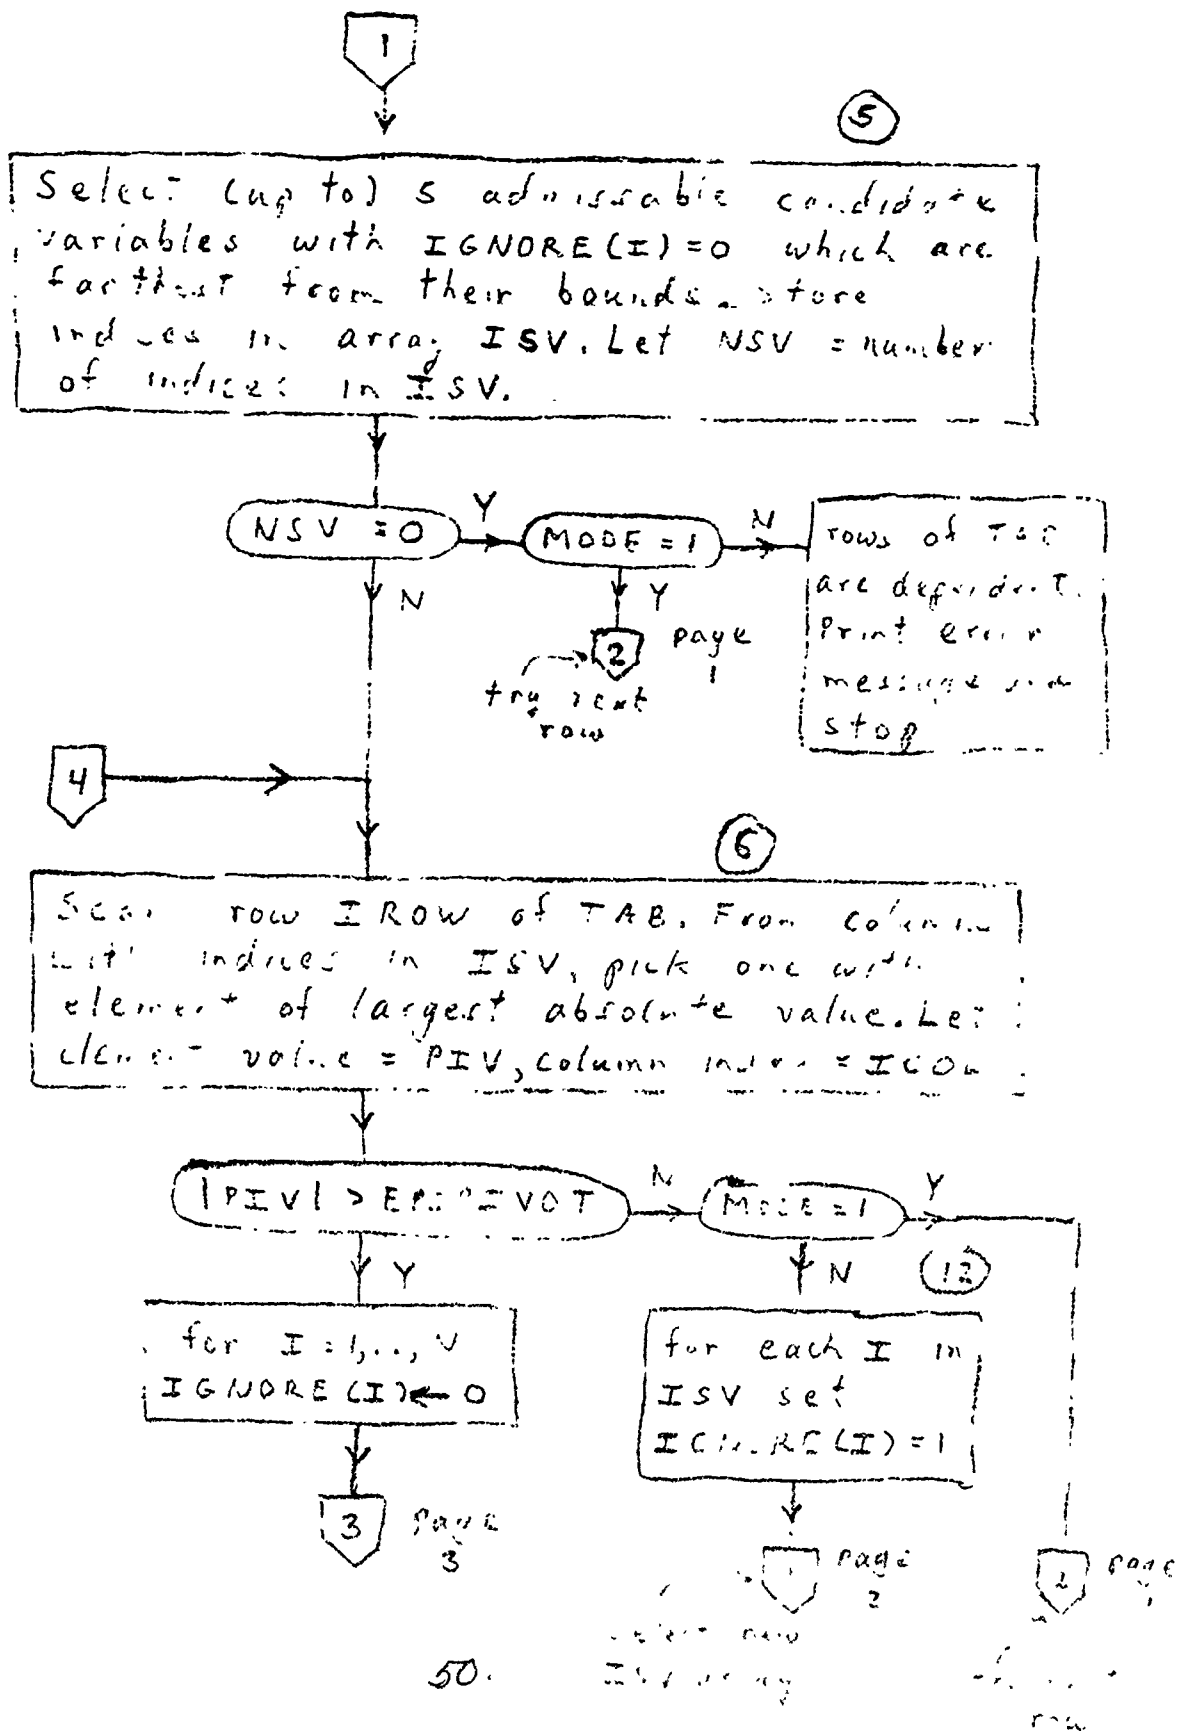 1
5
Select (up to) 5 admissable candidate
variables with IGNORE(I)=0 which are
farthest from their bounds. Store
indices in array ISV. Let NSV = number
of indices in ISV.
NSV = 0
Y
MODE = 1
N
rows of TAB
are dependent.
Print error
message and
stop
N
Y
2
page
1
try next
row
4
6
Scan row IROW of TAB. From columns
with indices in ISV, pick one with
element of largest absolute value. Let
element value = PIV, column index = ICOL
|PIV| > EPSPIVOT
N
MODE = 1
Y
Y
N
12
for I = 1,..,
IGNORE(I) ← 0
for each I in
ISV set
IGNORE(I) = 1
3
page
3
page
2
2
page
1
select new
ISV array
row
50.